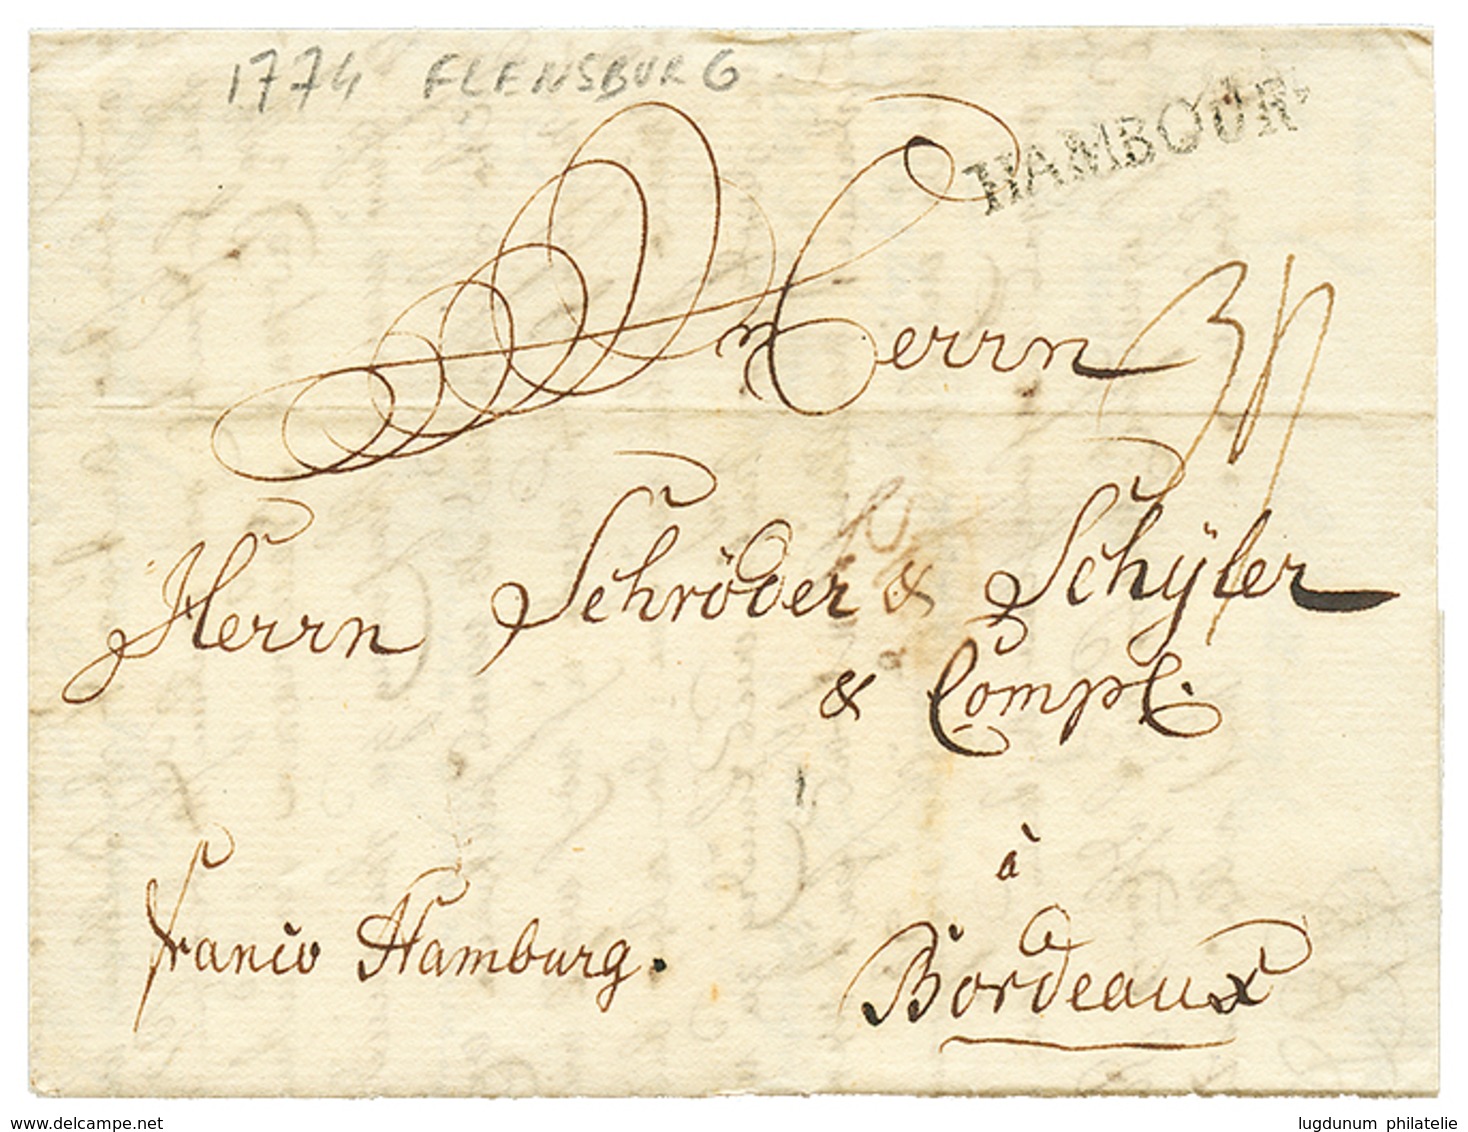 1774 FLENSBURG
HAMBOURG
Herrn
Herrn Schröder & Schÿler
& Comp.
à
franco Hamburg.
Bordeaux
www.delcampe.net
lugdunum philatelie